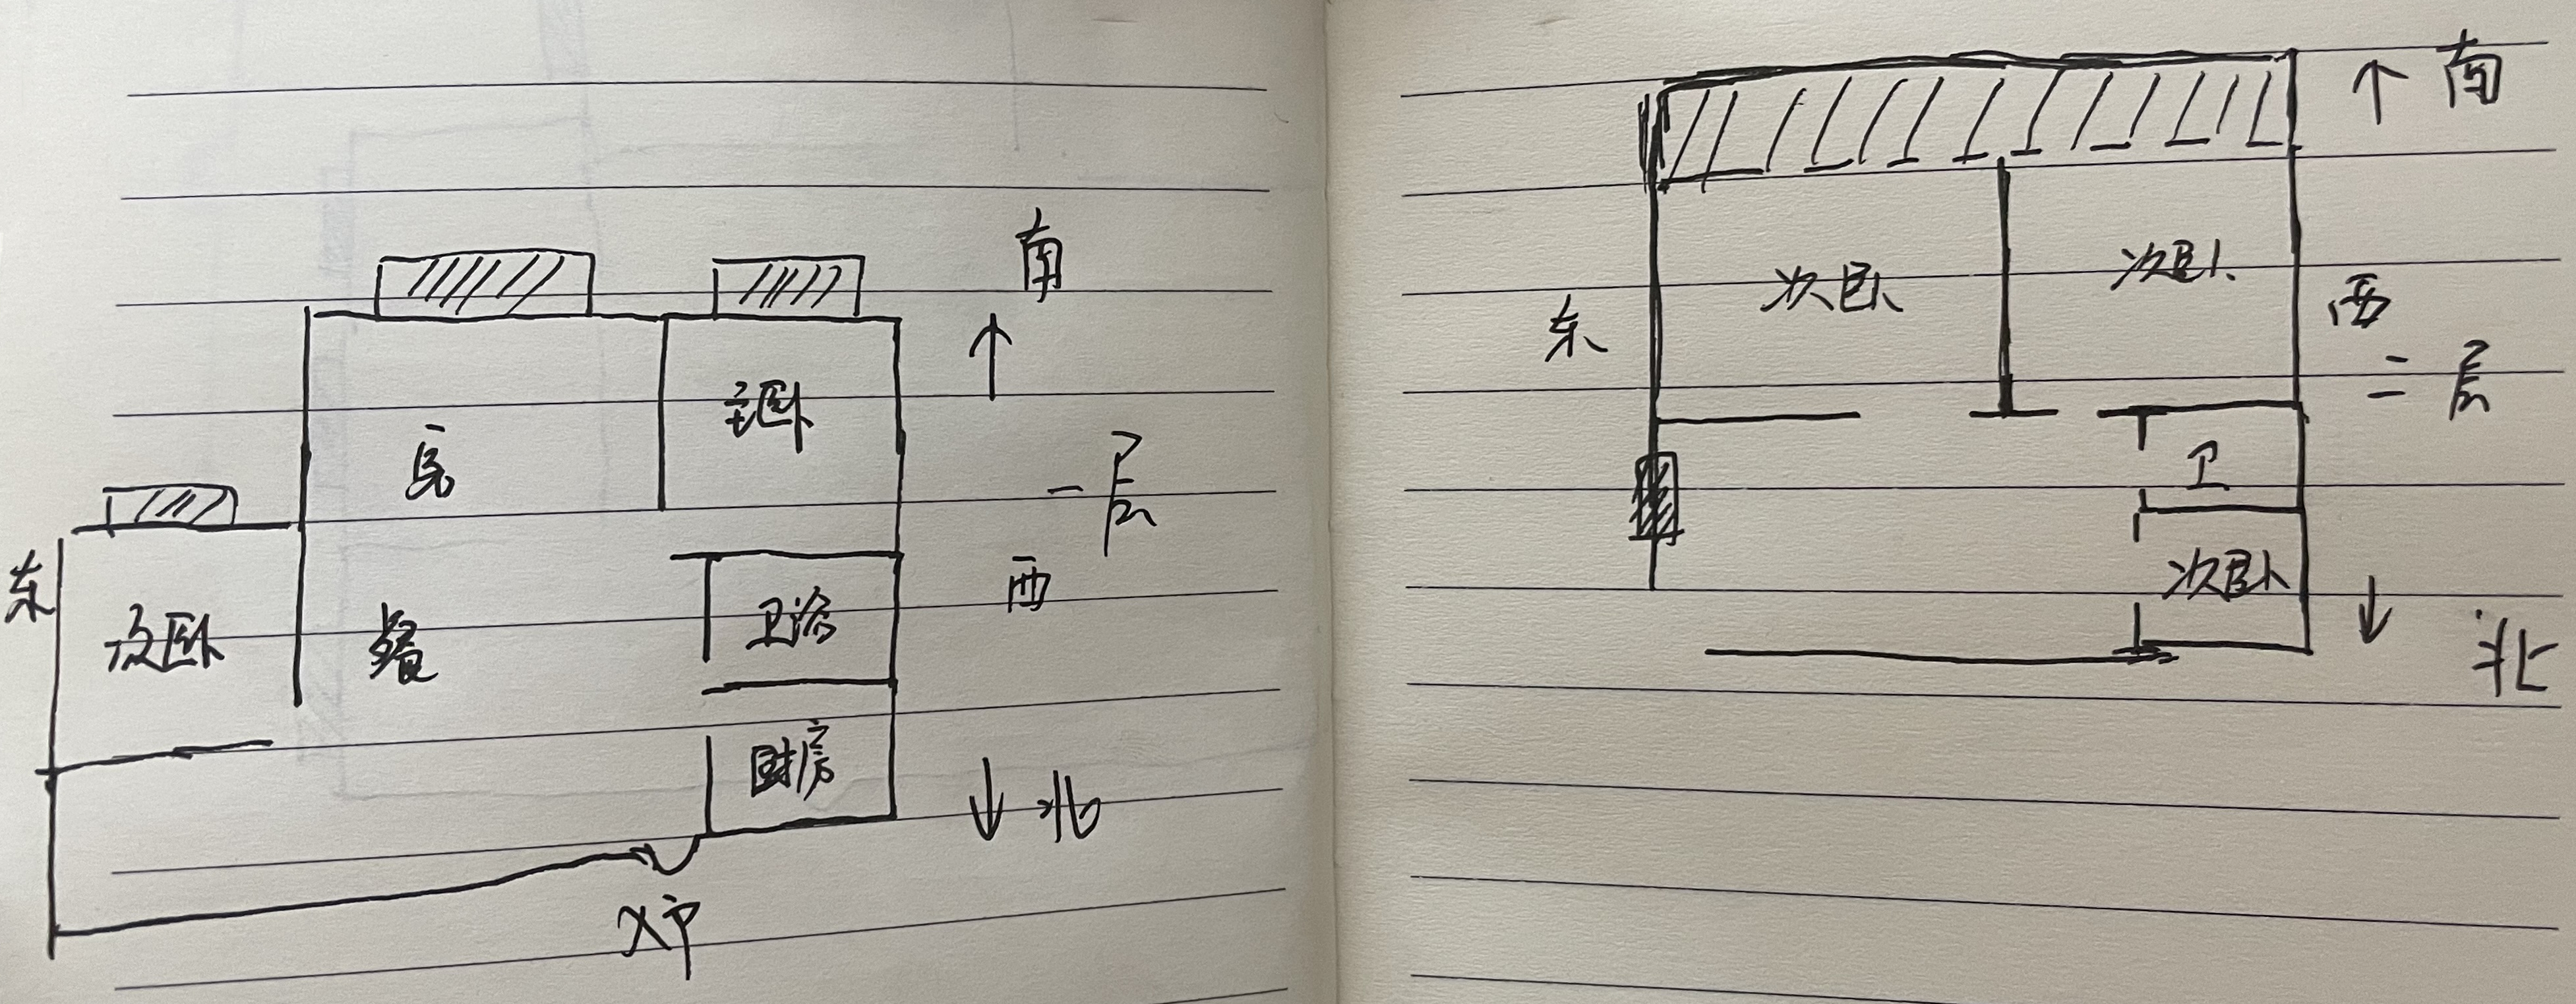 南
主卧
客
一层
东
西
次卧
餐
卫浴
厨房
北
入户
南
次卧
次卧
东
西
二层
卫
次卧
北